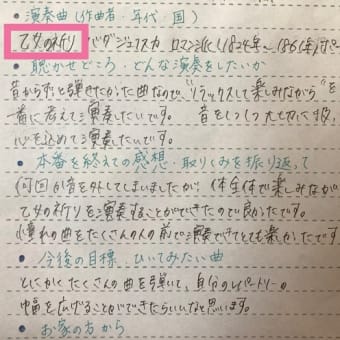 • 演奏曲(作曲者・年代・国)
乙女の祈り バダジェフスカ ロマン派(1834年〜1861年)ポー
• 聴かせどころ・どんな演奏をしたいか
昔からずっと弾きたかった曲なので、"リラックスして楽しみながら"を
一番に考えて演奏したいです。 音を1つ1つ大切に扱い
心を込めて演奏したいです。
• 本番を終えての感想・取りくみを振り返って
何回か音を外してしまいましたが、全体で楽しみなが
乙女の祈りを演奏することができたので良かったです。
憧れの曲をたくさんの人の前で演奏できてとても楽しかったです
• 今後の目標・ひいてみたい曲
とにかくたくさんの曲を弾いて、自分のレパートリーの
幅を広げることができたらいいなと思います。
• お家の方から